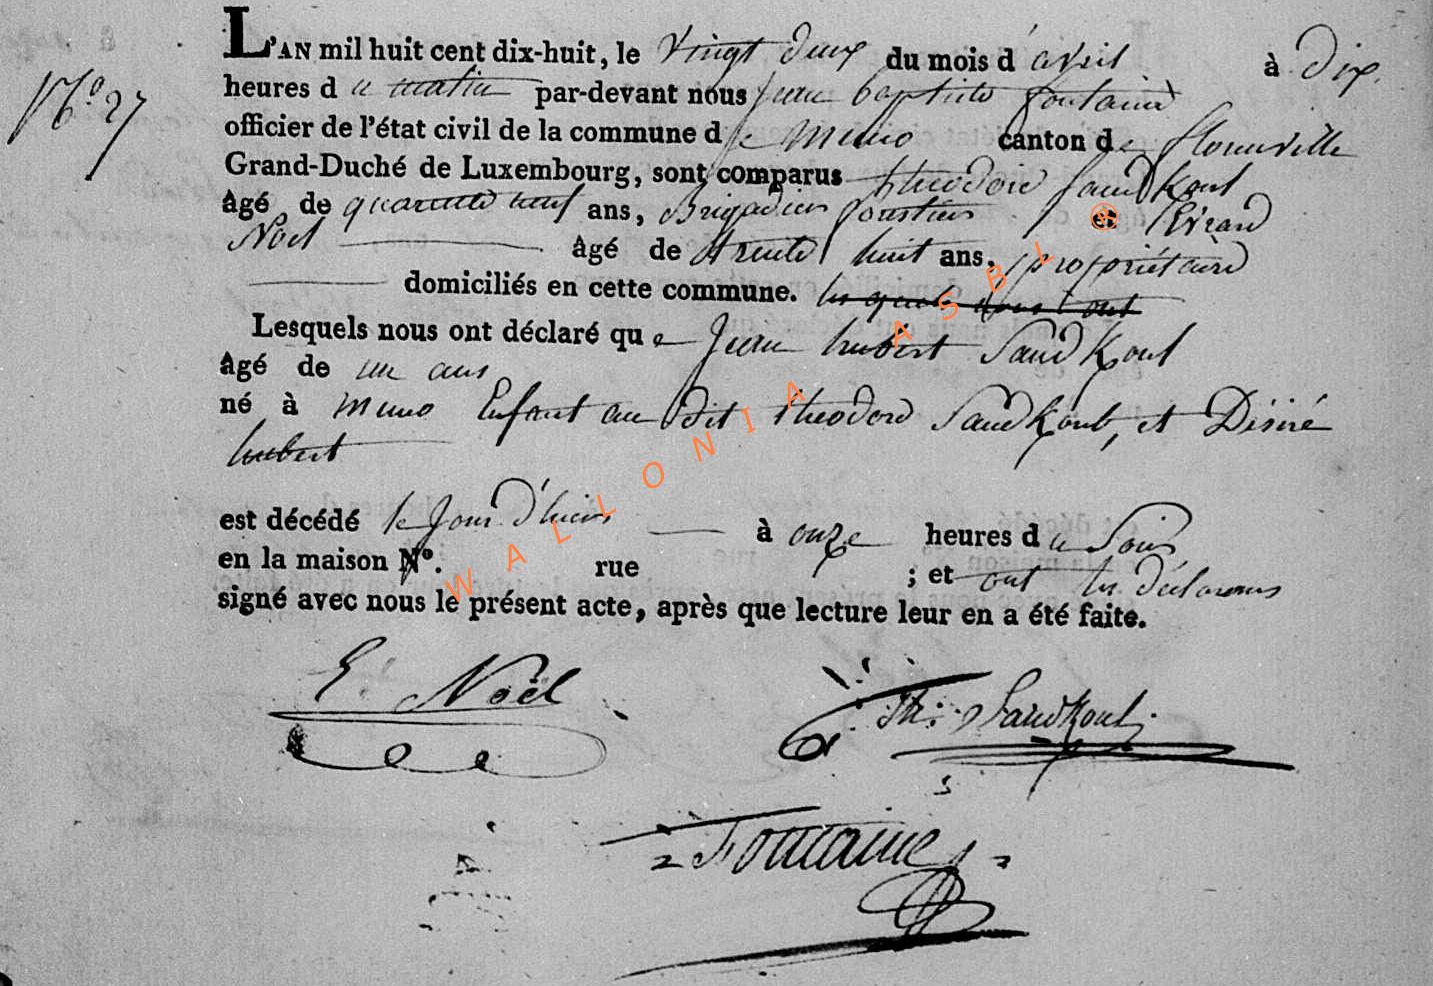 L'AN mil huit cent dix-huit, le Vingt deux du mois d'avril à Dix
N.º 27
heures du matin par-devant nous Jean baptiste fontaine
officier de l'état civil de la commune de Muno canton de florenville
Grand-Duché de Luxembourg, sont comparus théodore SandKoul
âgé de quarante neuf ans, Brigadier forestier et Evrard
Noël âgé de trente huit ans, propriétaire
domiciliés en cette commune. lesquels nous ont
Lesquels nous ont déclaré que Jean hubert SandKoul
âgé de un ans
né à muno Enfant au dit théodore SandKoul, et Désiré
hubert
est décédé le Jour d'hier à onze heures du Soir
en la maison Nº. rue ; et ont les déclarans
signé avec nous le présent acte, après que lecture leur en a été faite.
E. Noël Th: SandKoul
Fontaine
WALLONIA ASBL